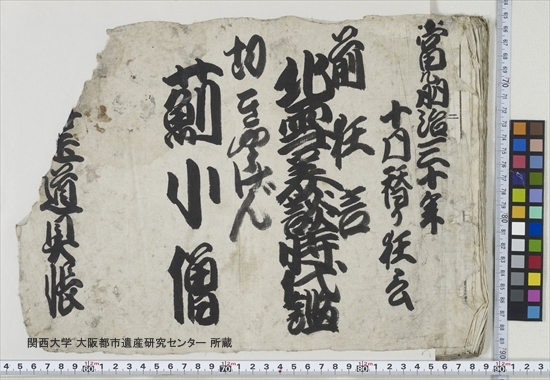 當ル明治三十年
十月替り狂言
前狂言
北雪美談時代鑑
切きやうげん
薊小僧
上道具帳
関西大学 大阪都市遺産研究センター 所蔵